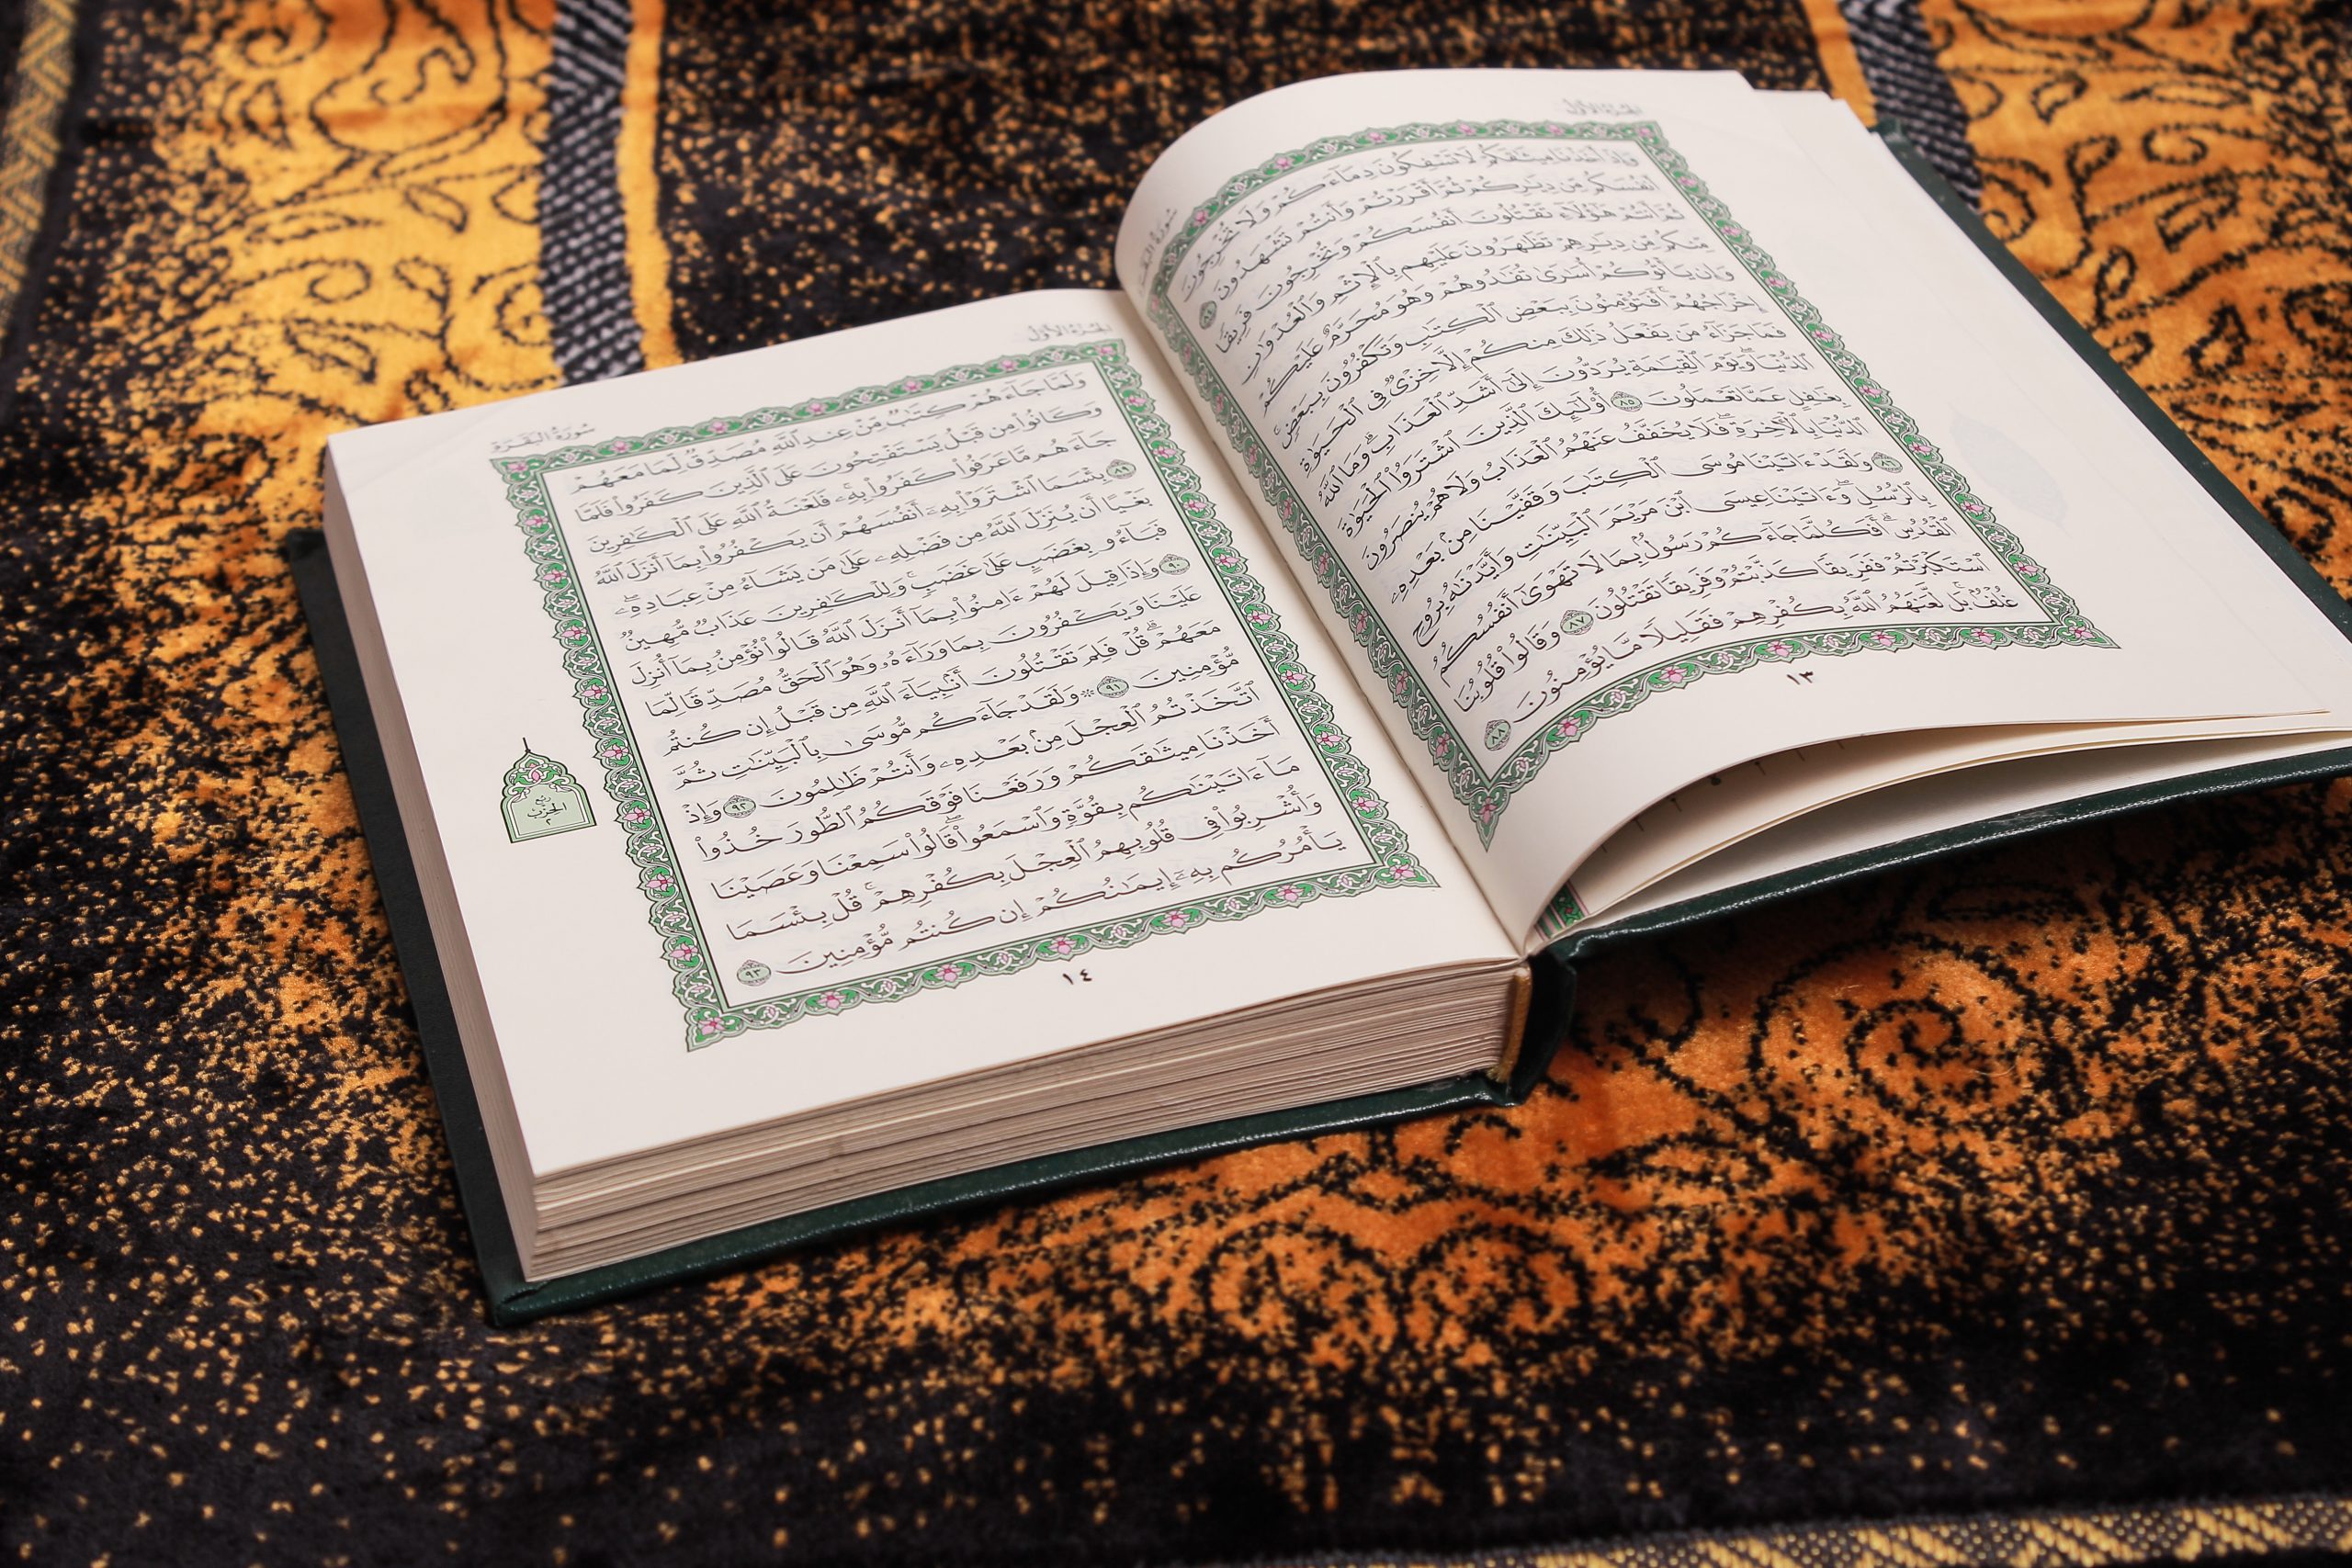 الجزء الأول
سورة البقرة
وَإِذْ أَخَذْنَا مِيثَٰقَكُمْ لَا تَسْفِكُونَ دِمَآءَكُمْ وَلَا تُخْرِجُونَ
أَنفُسَكُم مِّن دِيَٰرِكُمْ ثُمَّ أَقْرَرْتُمْ وَأَنتُمْ تَشْهَدُونَ ٨٤
ثُمَّ أَنتُمْ هَٰٓؤُلَآءِ تَقْتُلُونَ أَنفُسَكُمْ وَتُخْرِجُونَ فَرِيقًا
مِّنكُم مِّن دِيَٰرِهِمْ تَظَٰهَرُونَ عَلَيْهِم بِٱلْإِثْمِ وَٱلْعُدْوَٰنِ
وَإِن يَأْتُوكُمْ أُسَٰرَىٰ تُفَٰدُوهُمْ وَهُوَ مُحَرَّمٌ عَلَيْكُمْ
إِخْرَاجُهُمْ ۚ أَفَتُؤْمِنُونَ بِبَعْضِ ٱلْكِتَٰبِ وَتَكْفُرُونَ بِبَعْضٍ ۚ
فَمَا جَزَآءُ مَن يَفْعَلُ ذَٰلِكَ مِنكُمْ إِلَّا خِزْىٌ فِى ٱلْحَيَوٰةِ
ٱلدُّنْيَا ۖ وَيَوْمَ ٱلْقِيَٰمَةِ يُرَدُّونَ إِلَىٰٓ أَشَدِّ ٱلْعَذَابِ ۗ وَمَا ٱللَّهُ
بِغَٰفِلٍ عَمَّا تَعْمَلُونَ ٨٥ أُو۟لَٰٓئِكَ ٱلَّذِينَ ٱشْتَرَوُا۟ ٱلْحَيَوٰةَ
ٱلدُّنْيَا بِٱلْءَاخِرَةِ ۖ فَلَا يُخَفَّفُ عَنْهُمُ ٱلْعَذَابُ وَلَا هُمْ يُنصَرُونَ
٨٦ وَلَقَدْ ءَاتَيْنَا مُوسَى ٱلْكِتَٰبَ وَقَفَّيْنَا مِنۢ بَعْدِهِۦ
بِٱلرُّسُلِ ۖ وَءَاتَيْنَا عِيسَى ٱبْنَ مَرْيَمَ ٱلْبَيِّنَٰتِ وَأَيَّدْنَٰهُ بِرُوحِ
ٱلْقُدُسِ ۗ أَفَكُلَّمَا جَآءَكُمْ رَسُولٌۢ بِمَا لَا تَهْوَىٰٓ أَنفُسُكُمُ
ٱسْتَكْبَرْتُمْ فَفَرِيقًا كَذَّبْتُمْ وَفَرِيقًا تَقْتُلُونَ ٨٧ وَقَالُوا۟ قُلُوبُنَا
غُلْفٌۢ ۚ بَل لَّعَنَهُمُ ٱللَّهُ بِكُفْرِهِمْ فَقَلِيلًا مَّا يُؤْمِنُونَ ٨٨
١٣
الجزء الأول
سورة البقرة
وَلَمَّا جَآءَهُمْ كِتَٰبٌ مِّنْ عِندِ ٱللَّهِ مُصَدِّقٌ لِّمَا مَعَهُمْ
وَكَانُوا۟ مِن قَبْلُ يَسْتَفْتِحُونَ عَلَى ٱلَّذِينَ كَفَرُوا۟ فَلَمَّا
جَآءَهُم مَّا عَرَفُوا۟ كَفَرُوا۟ بِهِۦ ۚ فَلَعْنَةُ ٱللَّهِ عَلَى ٱلْكَٰفِرِينَ
٨٩ بِئْسَمَا ٱشْتَرَوْا۟ بِهِۦٓ أَنفُسَهُمْ أَن يَكْفُرُوا۟ بِمَآ أَنزَلَ ٱللَّهُ
بَغْيًا أَن يُنَزِّلَ ٱللَّهُ مِن فَضْلِهِۦ عَلَىٰ مَن يَشَآءُ مِنْ عِبَادِهِۦ ۖ
فَبَآءُو بِغَضَبٍ عَلَىٰ غَضَبٍ ۚ وَلِلْكَٰفِرِينَ عَذَابٌ مُّهِينٌ
٩٠ وَإِذَا قِيلَ لَهُمْ ءَامِنُوا۟ بِمَآ أَنزَلَ ٱللَّهُ قَالُوا۟ نُؤْمِنُ بِمَآ أُنزِلَ
عَلَيْنَا وَيَكْفُرُونَ بِمَا وَرَآءَهُۥ وَهُوَ ٱلْحَقُّ مُصَدِّقًا لِّمَا
مَعَهُمْ ۗ قُلْ فَلِمَ تَقْتُلُونَ أَنۢبِيَآءَ ٱللَّهِ مِن قَبْلُ إِن كُنتُم
مُّؤْمِنِينَ ٩١ ۞ وَلَقَدْ جَآءَكُم مُّوسَىٰ بِٱلْبَيِّنَٰتِ ثُمَّ
ٱتَّخَذْتُمُ ٱلْعِجْلَ مِنۢ بَعْدِهِۦ وَأَنتُمْ ظَٰلِمُونَ ٩٢ وَإِذْ
أَخَذْنَا مِيثَٰقَكُمْ وَرَفَعْنَا فَوْقَكُمُ ٱلطُّورَ خُذُوا۟
مَآ ءَاتَيْنَٰكُم بِقُوَّةٍ وَٱسْمَعُوا۟ ۖ قَالُوا۟ سَمِعْنَا وَعَصَيْنَا
وَأُشْرِبُوا۟ فِى قُلُوبِهِمُ ٱلْعِجْلَ بِكُفْرِهِمْ ۚ قُلْ بِئْسَمَا
يَأْمُرُكُم بِهِۦٓ إِيمَٰنُكُمْ إِن كُنتُم مُّؤْمِنِينَ ٩٣
ربع
الحزب
٢
١٤